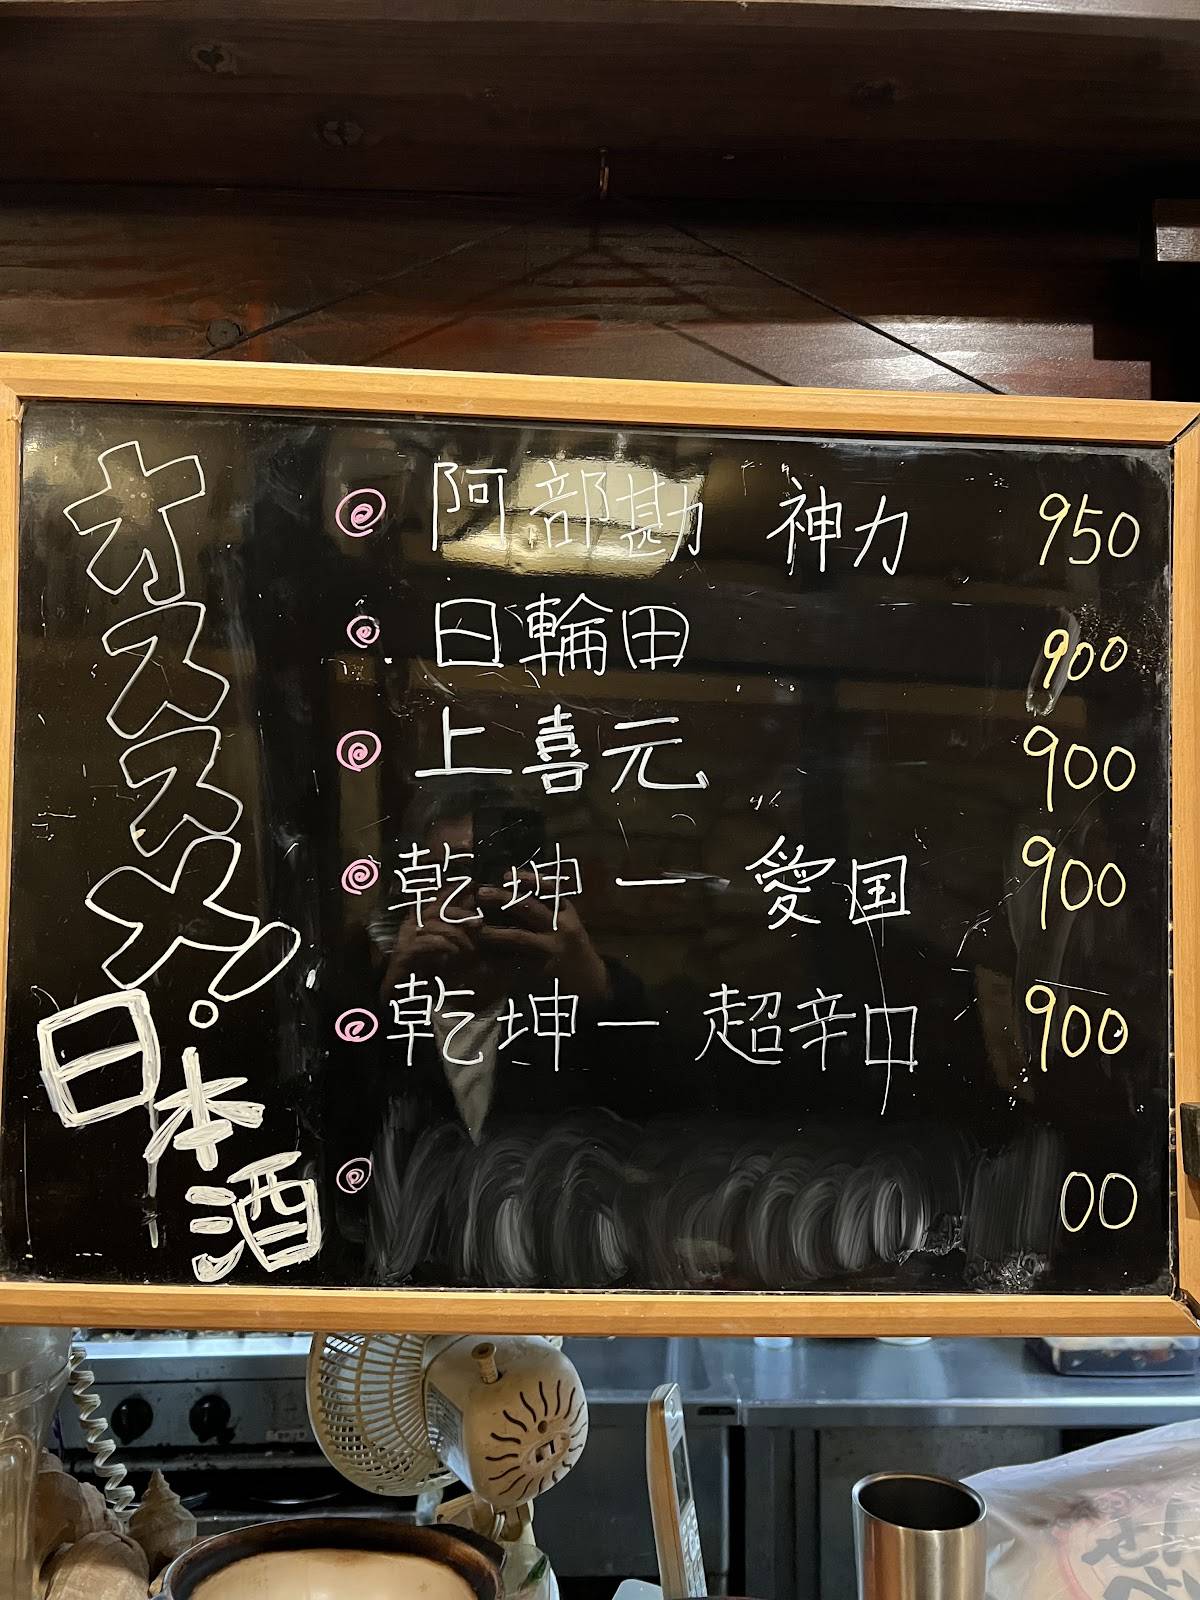 オススメ!
日本酒
阿部勘 神力 950
日輪田 900
上喜元 900
乾坤一 愛国 900
乾坤一 超辛口 900
00